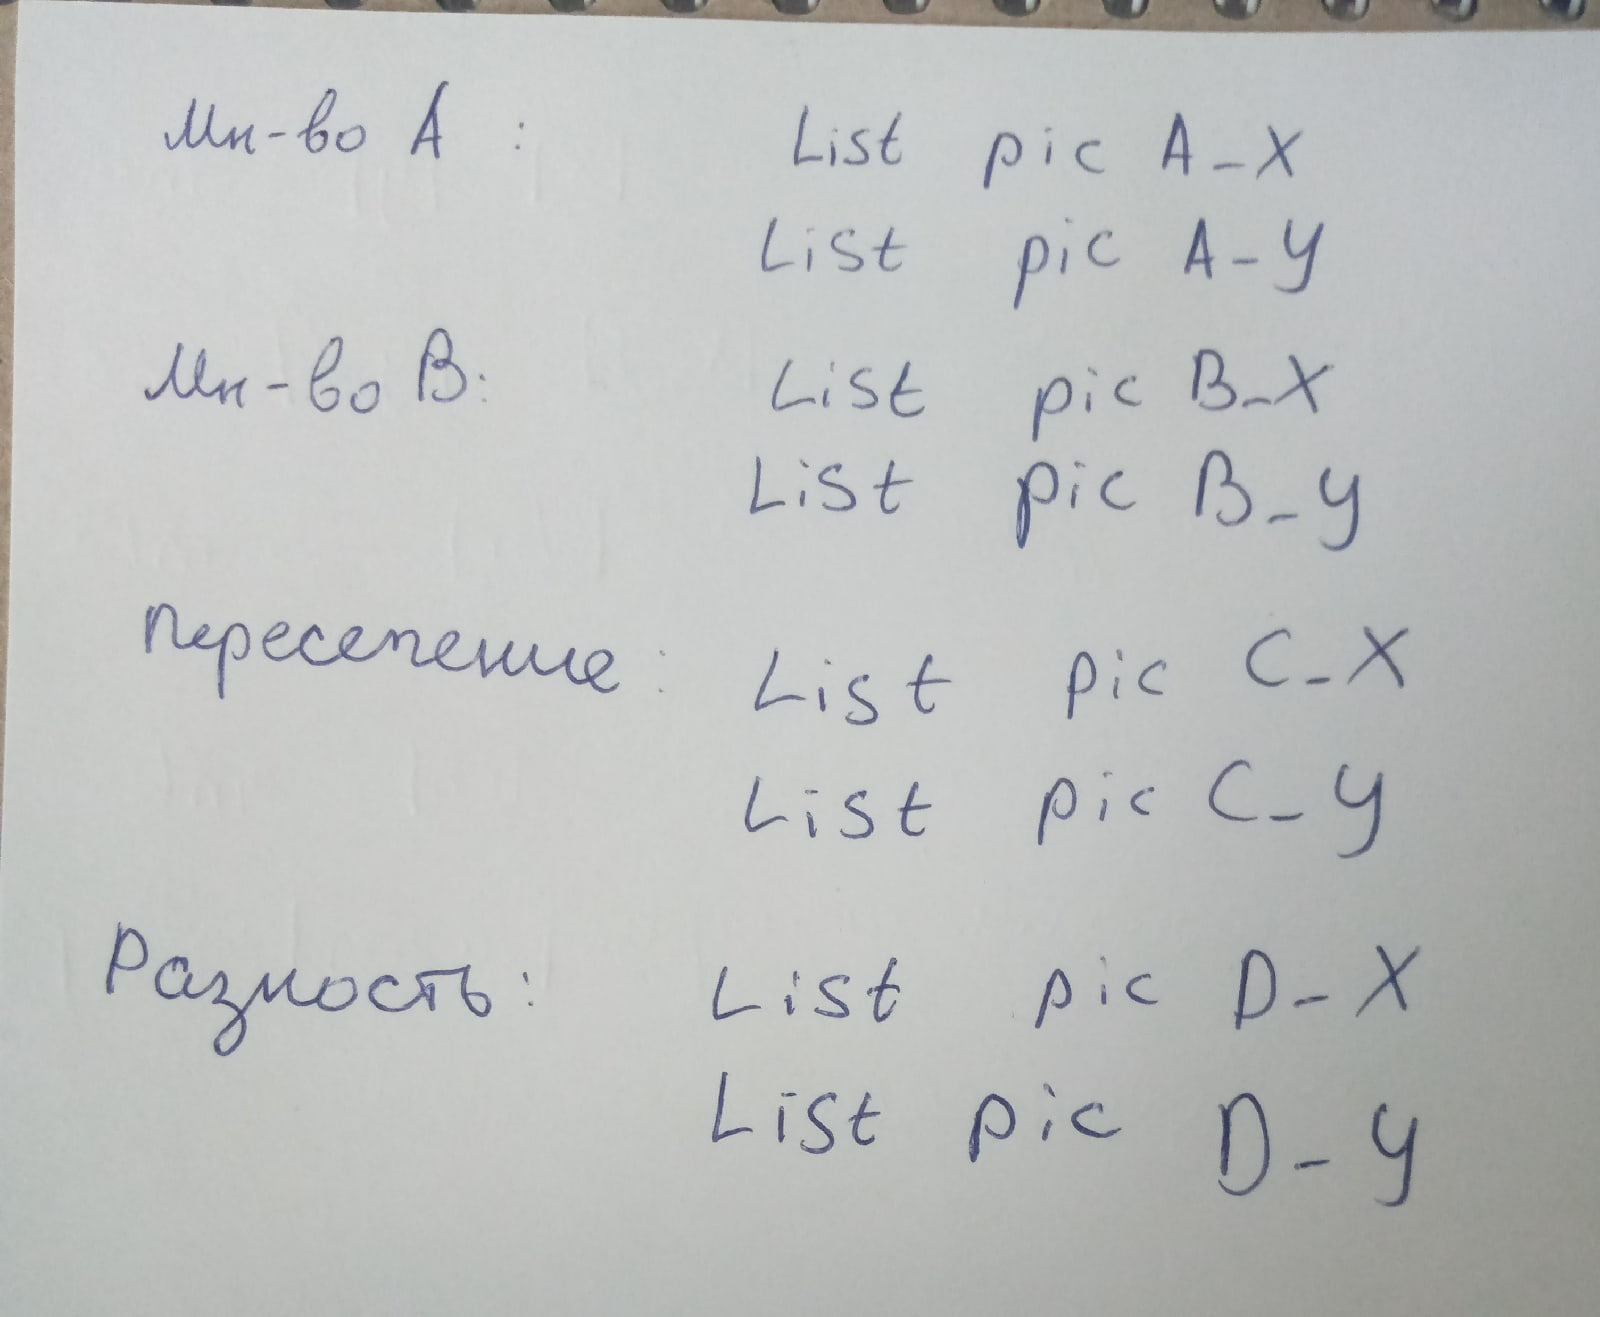 Мн-во A : List pic A_X
List pic A_Y
Мн-во B: List pic B_X
List pic B_Y
Пересечение: List pic C_X
List pic C_Y
Разность: List pic D_X
List pic D_Y